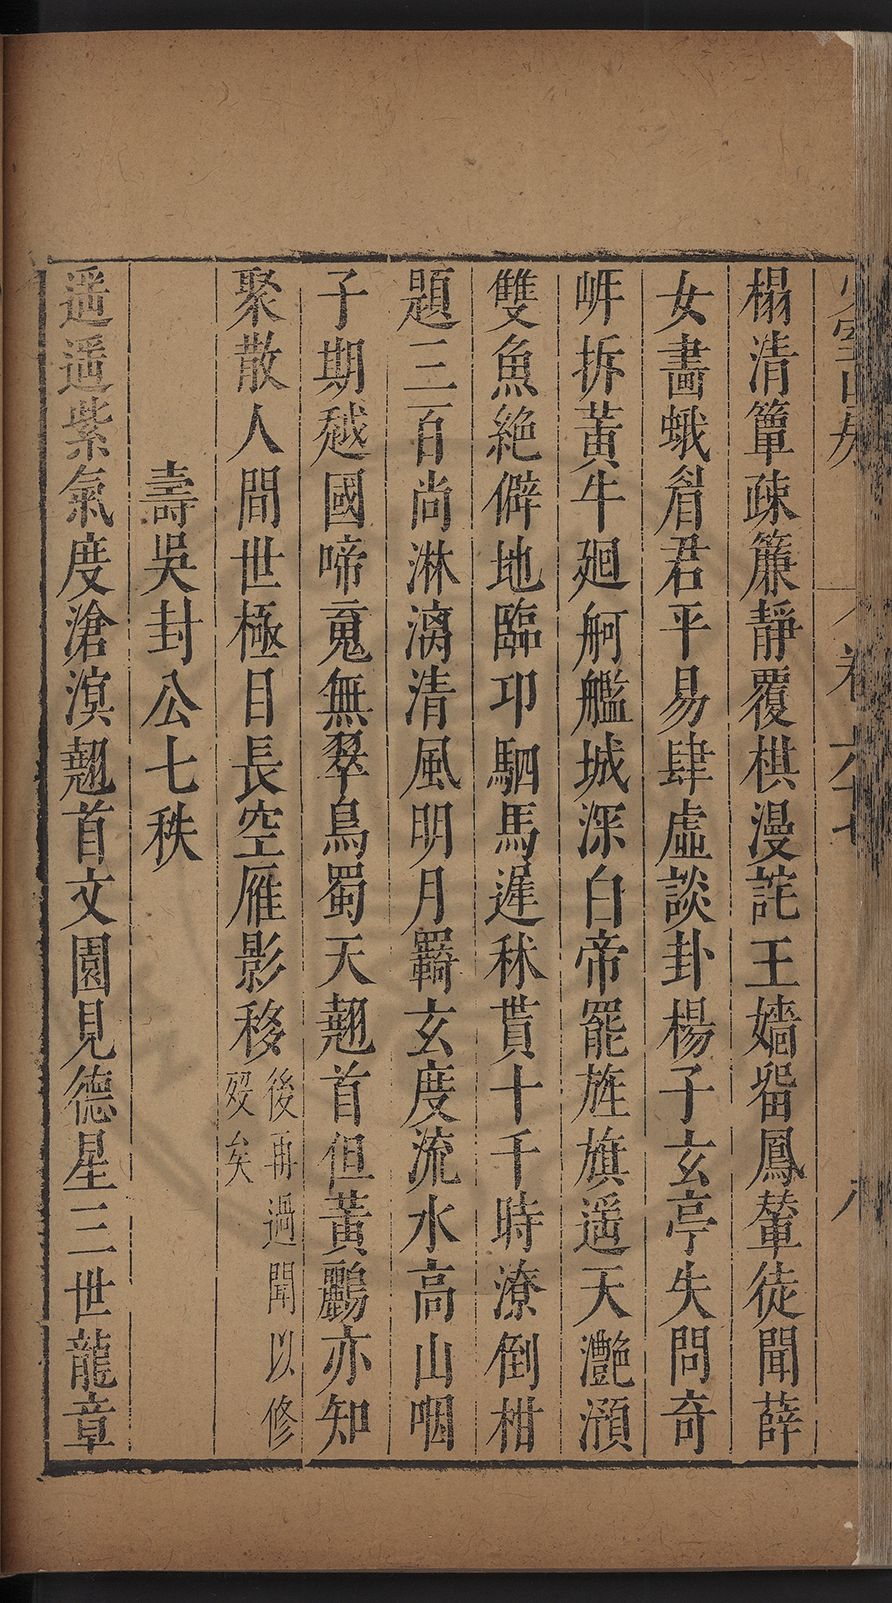 少室山房 卷六十七 八
榻清簟疎簾靜覆棋漫詫王嬙留鳳輦徒聞薛
女畵蛾眉君平易肆虛談卦楊子玄亭失問奇
㟁拆黃牛廻舸艦城深白帝罷旌旗遥天灧澦
雙魚絶僻地臨卭駟馬遲秫貰十千時潦倒柑
題三百尚淋漓清風明月羇玄度流水高山咽
子期越國啼䰟無翠鳥蜀天翹首但黃鸝亦知
聚散人間世極目長空雁影移後再過聞以修
殁矣
壽吳封公七秩
遥遥紫氣度滄溟翹首文園見德星三世龍章